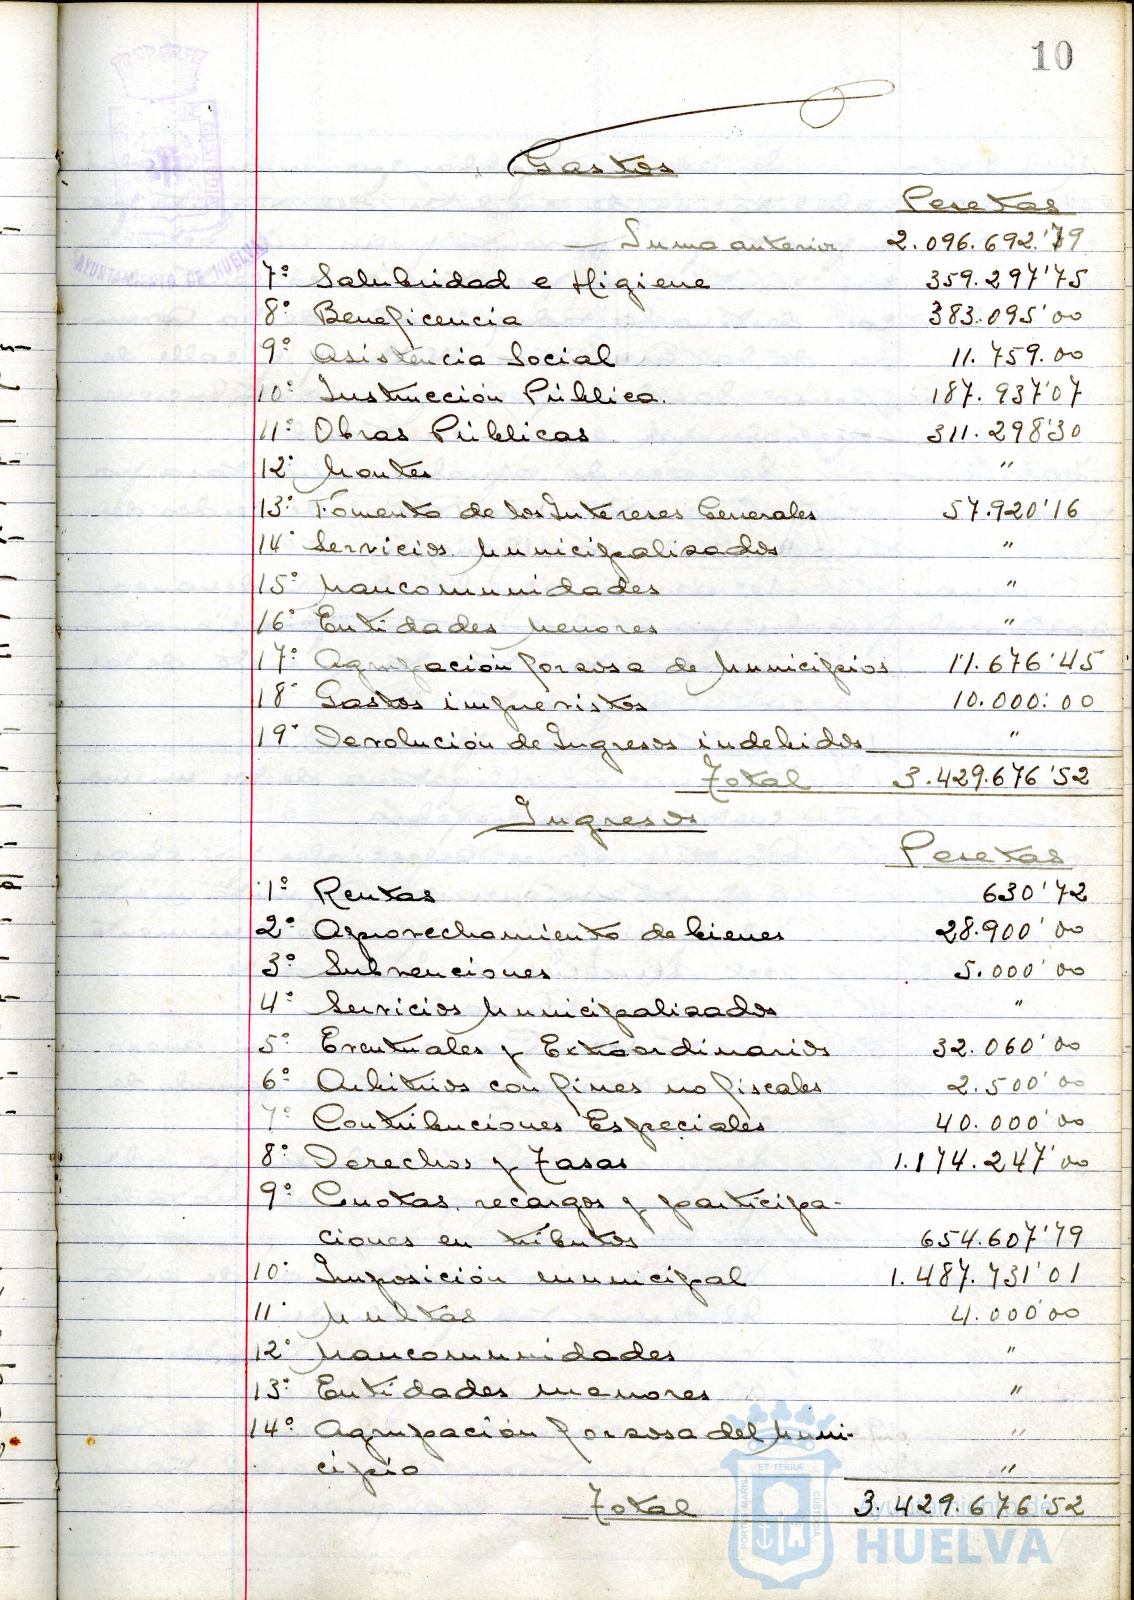 10
Gastos
Pesetas
Suma anterior 2.096.692.'79
7º Salubridad e Higiene 359.297'75
8º Beneficencia 383.095'00
9º Asistencia Social 11.759.00
10º Instrucción Pública. 187.937'07
11º Obras Públicas 311.298'30
12º Montes "
13º Fomento de los Intereses Generales 57.920'16
14º Servicios Municipalizados "
15º Mancomunidades "
16º Entidades Menores "
17º Agrupación forzosa de Municipios 11.676'45
18º Gastos imprevistos 10.000:00
19º Devolución de Ingresos indebidos "
Total 3.429.676'52
Ingresos
Pesetas
1º Rentas 630'72
2º Aprovechamiento de bienes 28.900'00
3º Subvenciones 5.000'00
4º Servicios Municipalizados "
5º Eventuales y Extraordinarios 32.060'00
6º Arbitrios con fines no fiscales 2.500'00
7º Contribuciones Especiales 40.000'00
8º Derechos y Tasas 1.174.247'00
9º Cuotas, recargos y participa-
ciones en tributos 654.607'79
10º Imposición municipal 1.487.731'01
11º Multas 4.000'00
12º Mancomunidades "
13º Entidades menores "
14º Agrupación forzosa del Muni- "
cipio "
Total 3.429.676'52
AYUNTAMIENTO DE HUELVA
PORTUS MARIS ET TERRÆ CUSTODIA
Ayuntamiento de
HUELVA